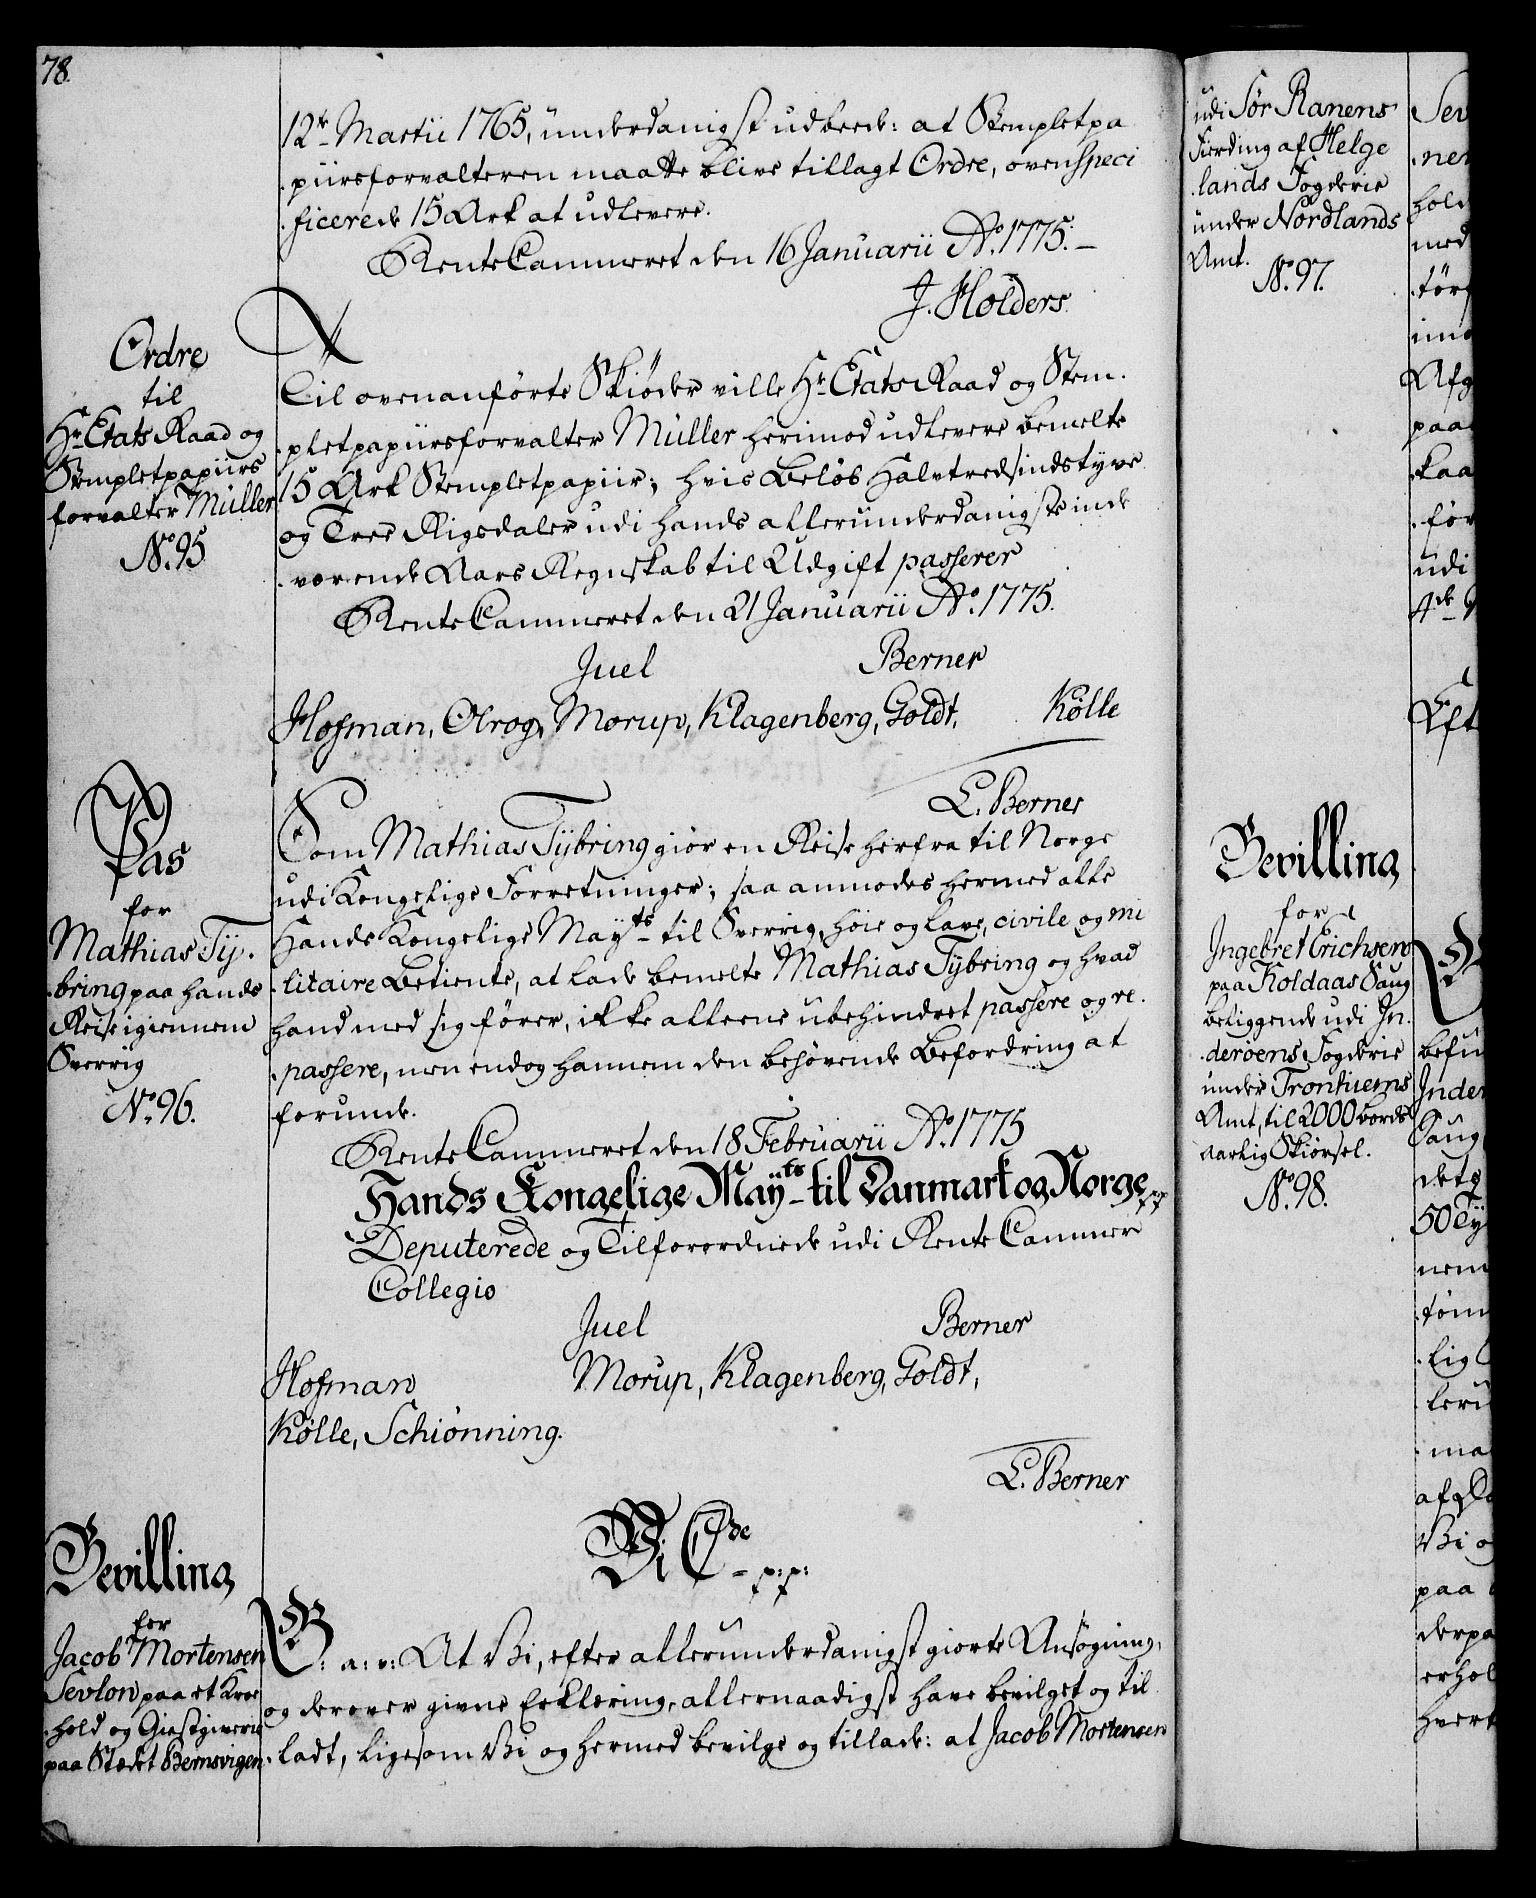 78.
12te Martii 1765, underdanigst udbeede: at Stempletpa
piirsforvalteren maatte blive tillagt Ordre, ovenspeci
ficerede 15 Ark at udlevere.
RenteCammeret den 16 Januarii Ao. 1775.
J. Holders.
Ordre
til
Hr. EtatsRaad og
Stempletpapiirs
forvalter Müller
No. 95
Til ovenanførte Skiøder ville Hr. EtatsRaad og Stem-
pletpapiirsforvalter Müller herimod udlevere bemelte
15 Ark Stempletpapiir; hvis Beløb Halvtredsindstyve
og Tree Rigsdaler udi hands allerunderdanigste inde
værende Aars Regnskab til Udgift passerer
RenteCammeret den 21 Januarii Ao. 1775.
Juel Berner
Hofman, Olrog, Morup, Klagenberg, Goldt, Kölle
L. Berner
Pas
for
Mathias Tÿ-
bring paa hands
Reise igiennem
Sverrig
No. 96.
Som Mathias Tÿbring giør en Reise herfra til Norge
udi Kongelige Forretninger; saa anmodes hermed alle
Hands Kongelige Mayts. til Sverrig, høie og lave, civile og mi
litaire Betiente, at lade bemelte Mathias Tÿbring og hvad
hand med sig fører, ikke alleene ubehindret passere og re-
passere, men endog hannem den behøvende Befordring at
forunde.
RenteCammeret den 18 Februarii Ao. 1775
Hands Kongelige Mayts. til Danmark og Norge pp
Deputerede og Tilforordnede udi RenteCammer
Collegio
Juel Berner
Hofman Morup, Klagenberg, Goldt,
Kölle, Schiønning.
L. Berner
Vi C de p:p:
Bevilling
for
Jacob Mortensen
Sevlon paa et Kroe
hold og Giestgiverie
paa Stædet Bernsvigen
G: a: v: At Vi, efter allerunderdanigst giorte Ansøgning,
og derover givne Erklæring, allernaadigst have bevilget og til
ladt, ligesom Vi og hermed bevilge og tillade: at Jacob Mortensen
udi Sør Ranens
Fierding af Helge
lands Fogderie
under Nordlands
Amt.
No. 97.
Bevilling
for
Ingebret Erichsen
paa Koldaas Saug
beliggende udi In-
deroens Fogderie
under Tronhiems
Amt, til 2000 Borde
aarlig Skiørsel.
No. 98.